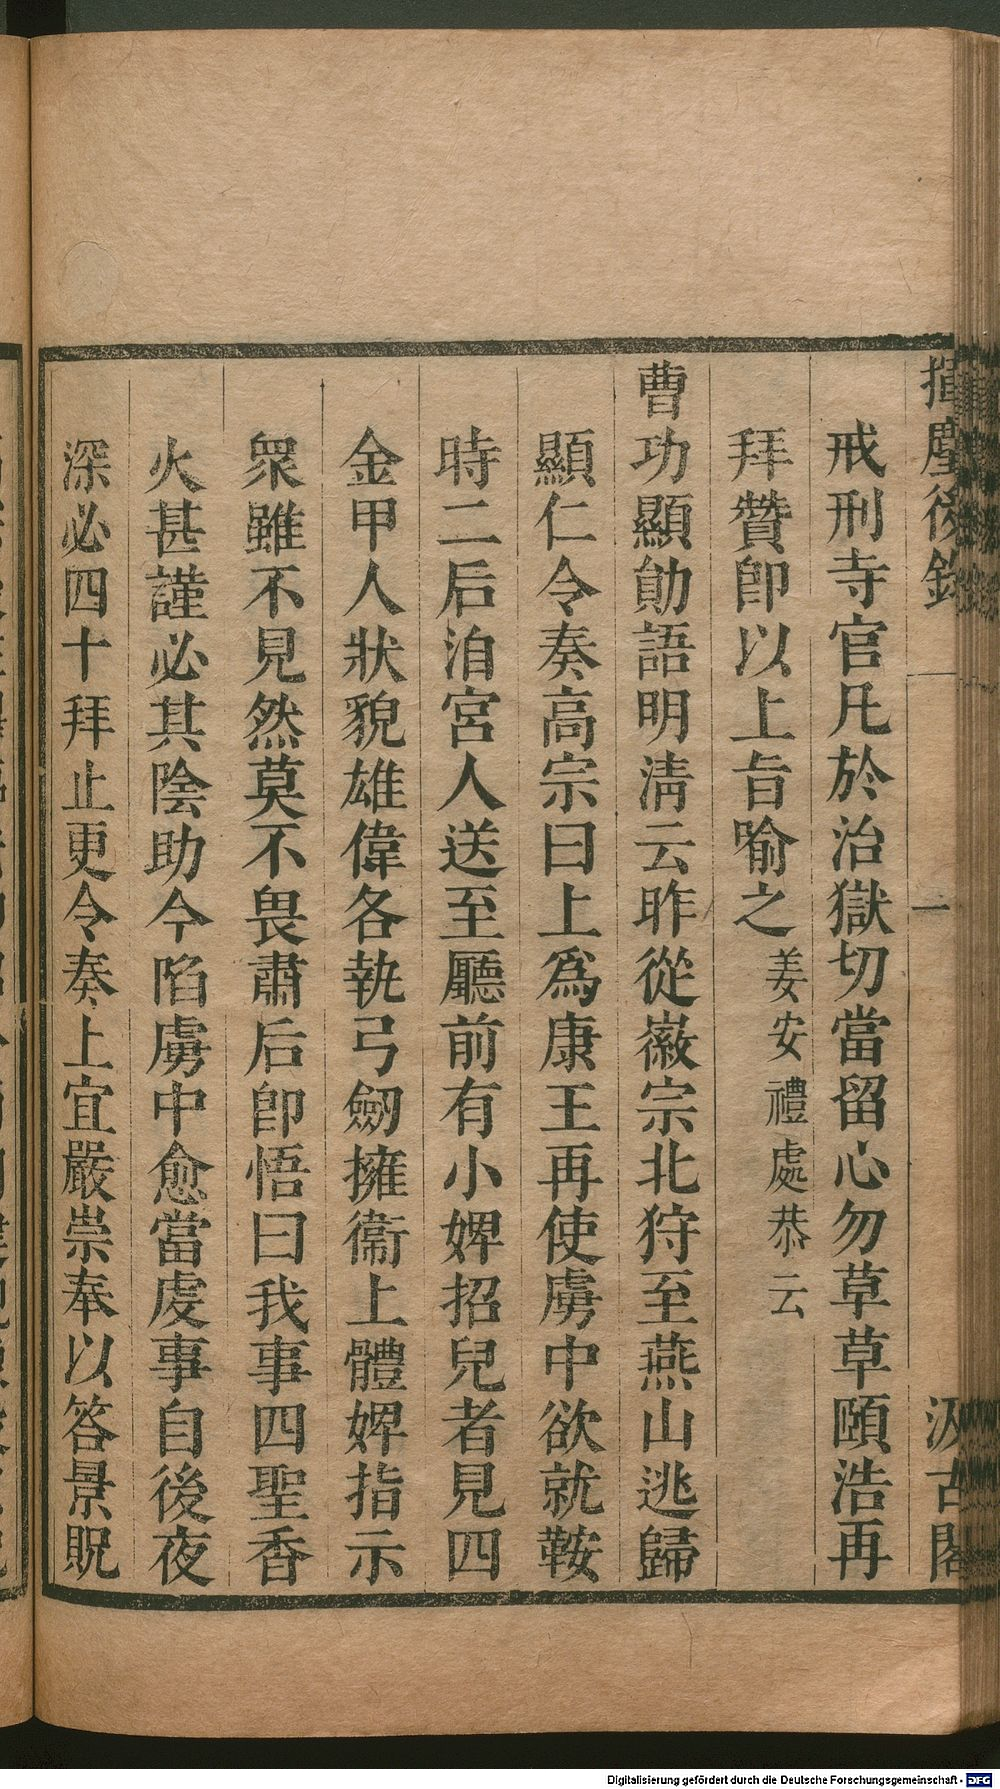 揮麈後錄
一
汲古閣
戒刑寺官凡於治獄切當留心勿草草頤浩再
拜贊卽以上旨喻之姜安禮處恭云
曹功顯勛語明淸云昨從徽宗北狩至燕山逃歸
顯仁令奏高宗曰上爲康王再使虜中欲就鞍
時二后洎宮人送至廳前有小婢招兒者見四
金甲人狀貌雄偉各執弓劒擁衞上體婢指示
衆雖不見然莫不畏肅后卽悟曰我事四聖香
火甚謹必其陰助今陷虜中愈當虔事自後夜
深必四十拜止更令奏上宜嚴崇奉以答景貺
Digitalisierung gefördert durch die Deutsche Forschungsgemeinschaft - DFG